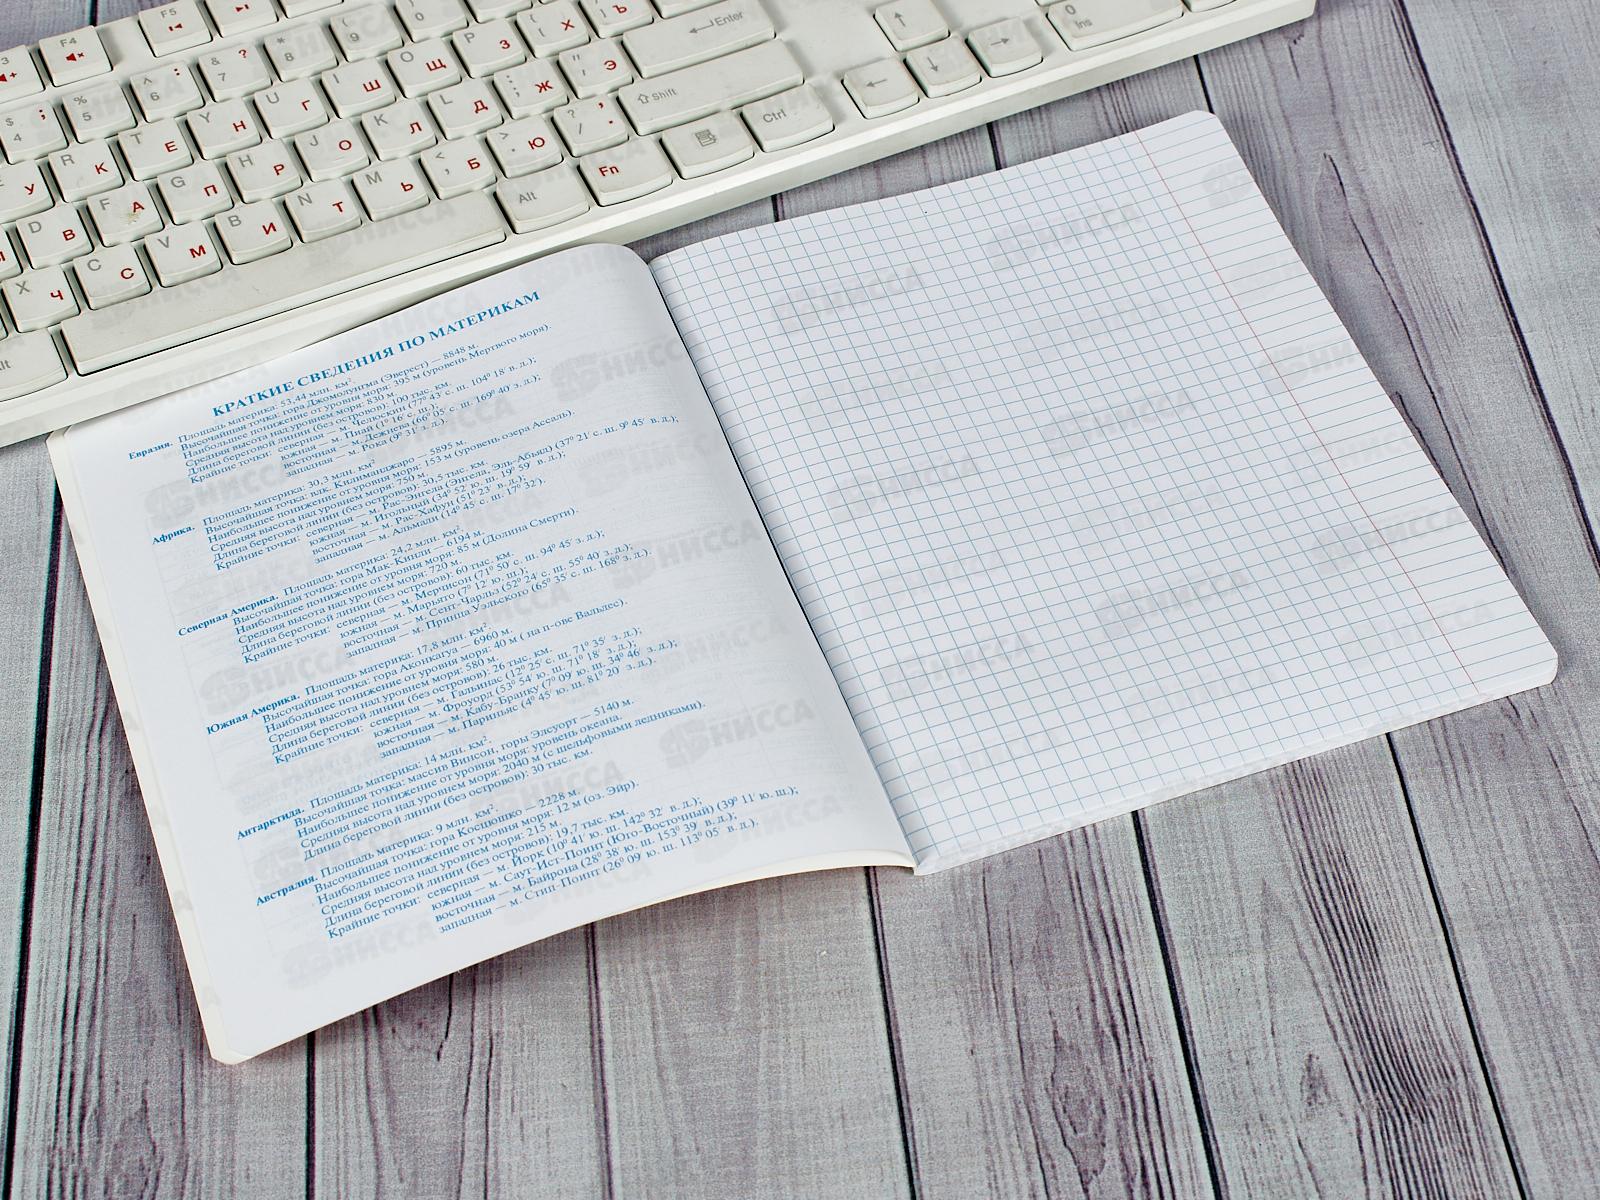 КРАТКИЕ СВЕДЕНИЯ ПО МАТЕРИКАМ
Евразия. Площадь материка: 53,44 млн. км².
Высочайшая точка: гора Джомолунгма (Эверест) — 8848 м.
Наибольшее понижение от уровня моря: 395 м (уровень Мертвого моря).
Средняя высота над уровнем моря: 830 м
Длина береговой линии (без островов): 100 тыс. км.
Крайние точки: северная — м. Челюскин (77° 43′ с. ш. 104° 18′ в. д.);
южная — м. Пиай (1° 16′ с. ш.);
восточная — м. Дежнева (66° 05′ с. ш. 169° 40′ з. д.);
западная — м. Рока (9° 31′ з. д.).
Африка. Площадь материка: 30,3 млн. км²
Высочайшая точка: влк. Килиманджаро — 5895 м.
Наибольшее понижение от уровня моря: 153 м (уровень озера Ассаль).
Средняя высота над уровнем моря: 750 м.
Длина береговой линии (без островов): 30,5 тыс. км.
Крайние точки: северная — м. Рас-Энгела (Энгела, Эль-Абьяд) (37° 21′ с. ш. 9° 45′ в. д.);
южная — м. Игольный (34° 52′ ю. ш. 19° 59′ в. д.);
восточная — м. Рас-Хафун (51° 23′ в. д.);
западная — м. Альмади (14° 45′ с. ш. 17° 32′).
Северная Америка. Площадь материка: 24,2 млн. км².
Высочайшая точка: гора Мак-Кинли — 6194 м.
Наибольшее понижение от уровня моря: 85 м (Долина Смерти).
Средняя высота над уровнем моря: 720 м.
Длина береговой линии (без островов): 60 тыс. км.
Крайние точки: северная — м. Мерчисон (71° 50′ с. ш. 94° 45′ з. д.);
южная — м. Марьято (7° 12′ ю. ш.);
восточная — м. Сент-Чарльз (52° 24′ с. ш. 55° 40′ з. д.);
западная — м. Принца Уэльского (65° 35′ с. ш. 168° з. д.).
Южная Америка. Площадь материка: 17,8 млн. км².
Высочайшая точка: гора Аконкагуа — 6960 м.
Наибольшее понижение от уровня моря: 40 м ( на п-ове Вальдес).
Средняя высота над уровнем моря: 580 м.
Длина береговой линии (без островов): 26 тыс. км.
Крайние точки: северная — м. Гальинас (12° 25′ с. ш. 71° 35′ з. д.);
южная — м. Фроуорд (53° 54′ ю. ш. 71° 18′ з. д.);
восточная — м. Кабу-Бранку (7° 09′ ю. ш. 34° 46′ з. д.);
западная — м. Париньяс (4° 45′ ю. ш. 81° 20′ з. д.).
Антарктида. Площадь материка: 14 млн. км².
Высочайшая точка: массив Винсон, горы Элсуорт — 5140 м.
Наибольшее понижение от уровня моря: уровень океана.
Средняя высота над уровнем моря: 2040 м (с шельфовыми ледниками).
Длина береговой линии (без островов): 30 тыс. км
Австралия. Площадь материка: 9 млн. км².
Высочайшая точка: гора Косцюшко — 2228 м.
Наибольшее понижение от уровня моря: 12 м (оз. Эйр).
Средняя высота над уровнем моря: 215 м.
Длина береговой линии (без островов): 19,7 тыс. км.
Крайние точки: северная — м. Йорк (10° 41′ ю. ш. 142° 32′ в. д.);
южная — м. Саут-Ист-Пойнт (Юго-Восточный) (39° 11′ ю. ш.);
восточная — м. Байрона (28° 38′ ю. ш. 153° 39′ в. д.);
западная — м. Стип-Пойнт (26° 09′ ю. ш. 113° 05′ в. д.).
Enter
Shift
Ctrl
Alt
Fn
Ins
F4
F5
НИССА